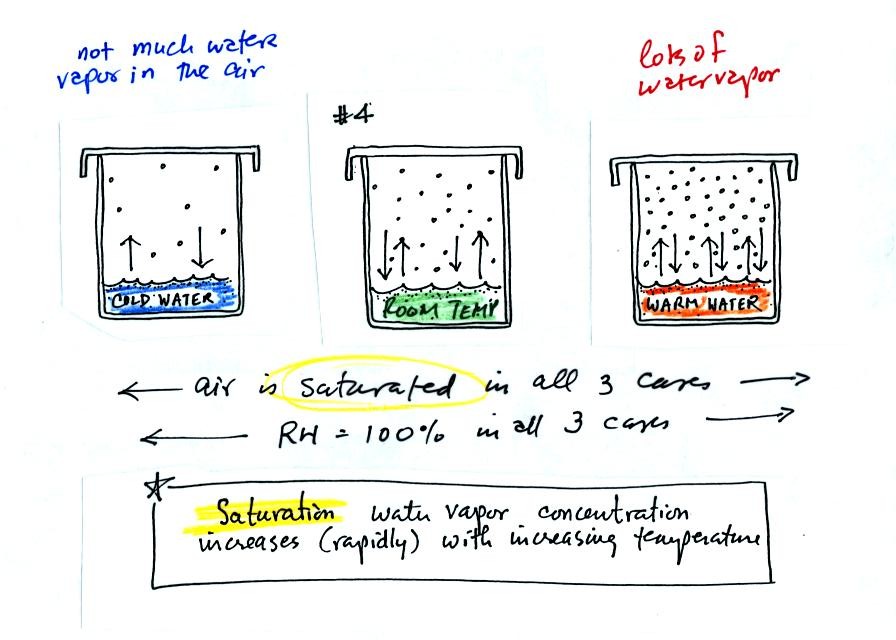 not much water
vapor in the air
lots of
water vapor
#4
COLD WATER
ROOM TEMP
WARM WATER
← air is saturated in all 3 cases →
← RH = 100% in all 3 cases →
Saturation water vapor concentration
increases (rapidly) with increasing temperature